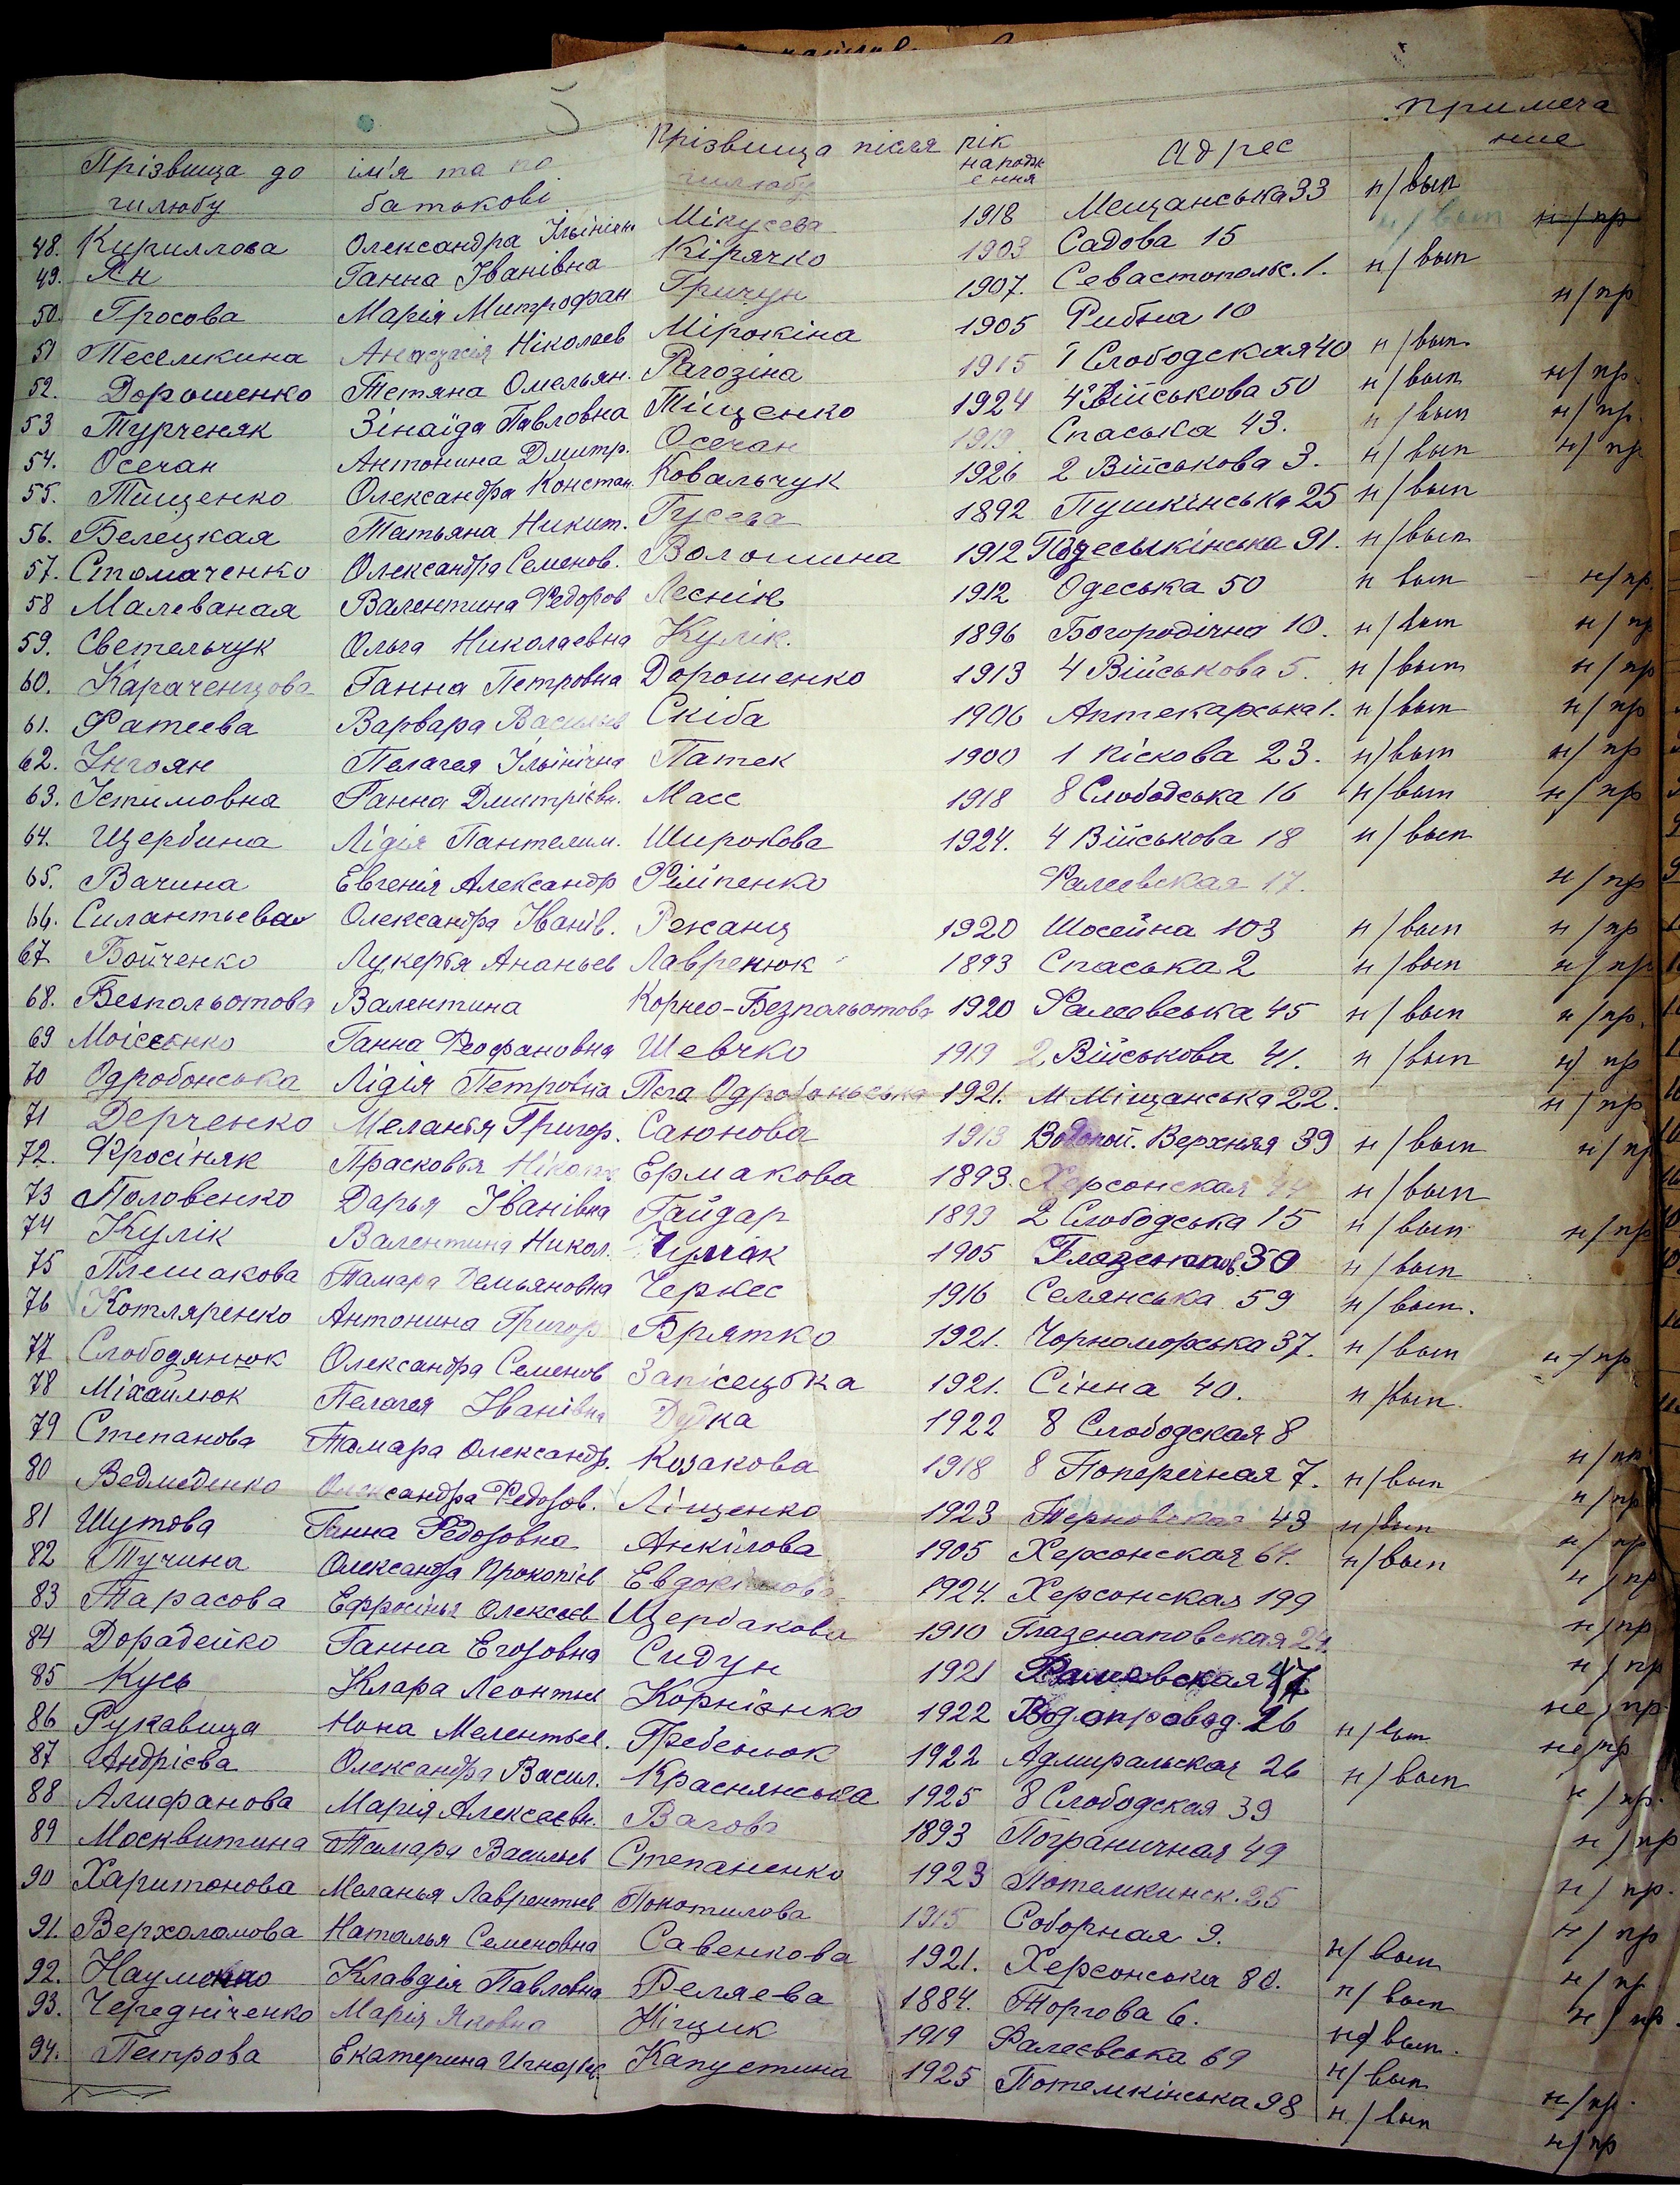 5
Прізвища до шлюбу ім'я та по батькові Прізвища після шлюбу рік народження адрес примечание
48. Кириллова Олександра Ільінічн Мікусева 1918 Мещанська 33 н/вып н/пр
49. Ян Ганна Іванівна Кірячко 1903 Садова 15 н/вып
50. Гросова Марія Митрофан Гричун 1907. Севастопольс. 1. н/вып н/пр
51 Песелкина Анастасія Ніколаев Мірокіна 1905 Рибна 10
52. Дорошенко Тетяна Омельян. Рагозіна 1915 1 Слободская 40 н/вып н/пр
53 Турченяк Зінаїда Павловна Тіщенко 1924 4 Військова 50 н/вып н/пр.
54. Осечан Антонина Дмитр. Осечан 1919 Спаська 43. н/вып н/пр
55. Тищенко Олександра Констан. Ковальчук 1926 2 Військова 3. н/вып
56. Белецкая Татьяна Никит. Гусева 1892 Пушкінська 25 н/вып
57. Стомаченко Олександра Семенов. Волошина 1912 91. н/вып
58 Малеваная Валентина Федоров Леснік 1912 Одеська 50 н вып н/пр.
59. Светельчук Ольга Николаевна Кулік. 1896 Богородічна 10. н/вып н/пр
60. Караченцова Ганна Петровна Дорошенко 1913 4 Військова 5. н/вып н/пр
61. Фатеева Варвара Васильев Скіба 1906 Аптекарська 1. н/вып н/пр
62. Унгоян Пелагея Ільінічна Патек 1900 1 піскова 23. н/вып н/пр
63. Устимовна Ганна Дмитрієвн. Масс 1918 8 Слободська 16 н/вып н/пр
64. Щербина Лідія Пантелим. Широкова 1924. 4 Військова 18 н/вып
65. Вачина Евгенія Александр Філіпенко Фалеевская 17. н/пр
66. Силантьева Олександра Іванів. Режанц 1920 Шосейна 103 н/вып н/пр
67 Бойченко Лукерья Ананьев Лавренюк 1893 Спаська 2 н/вып н/пр
68. Безпальотова Валентина Корнео-Безпальотова 1920 Фалеевська 45 н/вып н/пр.
69 Моісеенко Ганна Феофановна Шевчко 1919 2 Військова 41. н/вып н/пр
70 Одробонська Лідія Петровна Пега Одробоньська 1921. М Міщанська 22. н/пр
71 Дерченко Меланья Григор. Саюнова 1913 Водопой. Верхняя 39 н/вып н/пр
72. Фросіняк Прасковья Нікола Ермакова 1893. Херсонская 44 н/вып
73 Половенко Дарья Іванівна Гайдар 1899 2 Слободська 15 н/вып н/пр
74 Кулік Валентина Никол. Чумак 1905 Глазенапов. 30 н/вып
75 Плешакова Тамара Демьяновна Черкес 1916 Селянська 59 н/вып.
76 Котляренко Антонина Григор Брятко 1921. Чорноморська 37. н/вып н/пр
77 Слободянюк Олександра Семенов Запісецька 1921. Сінна 40. н/вып.
78 Міхайлюк Пелагея Іванівна Дудка 1922 8 Слободская 8 н/пр
79 Степанова Тамара Олександр. Козакова 1918 8 Поперечная 7. н/вып н/пр
80 Ведмеденко Олександра Федоров. Ліщенко 1923 Терновская 43 н/вып н/пр
81 Шутова Ганна Федоровна Анкілова 1905 Херсонская 64. н/вып н/пр
82 Тучина Олександра Прокопієв Евдокімова 1924. Херсонская 199 н/пр
83 Тарасова Ефросінья Олексеєв Щербакова 1910 Глазенаповская 24. н/пр
84 Дорадейко Ганна Егоровна Сидун 1921 Фалеевская 47 не/пр
85 Кусь Клара Леонтьев Корнієнко 1922 Водопровод. 26 н/вып не/пр
86 Рукавица Нона Мелентьев. Гребенюк 1922 Адмиральская 26 н/вып н/пр.
87 Андрієва Олександра Васил. Краснянська 1925 8 Слободская 39 н/пр
88 Алифанова Марія Алексеевн. Вагова 1893 Пограничная 49 н/пр.
89 Москвитина Тамара Васильев Степаненко 1923 Потемкинск. 25 н/пр
90 Харитонова Меланья Лаврентьев Покотилова 1915 Соборная 9. н/вып н/пр
91. Верхоломова Наталья Семеновна Савенкова 1921. Херсонська 80. н/вып н/пр.
92. Науменко Клавдія Павловна Беляева 1884. Торгова 6. н/вып.
93. Чередніченко Марія Яковна Ніщик 1919 Фалеевська 69 н/вып н/пр.
94. Петрова Екатерина Игнатьев. Капустина 1925 Потемкінська 98 н/вып н/пр